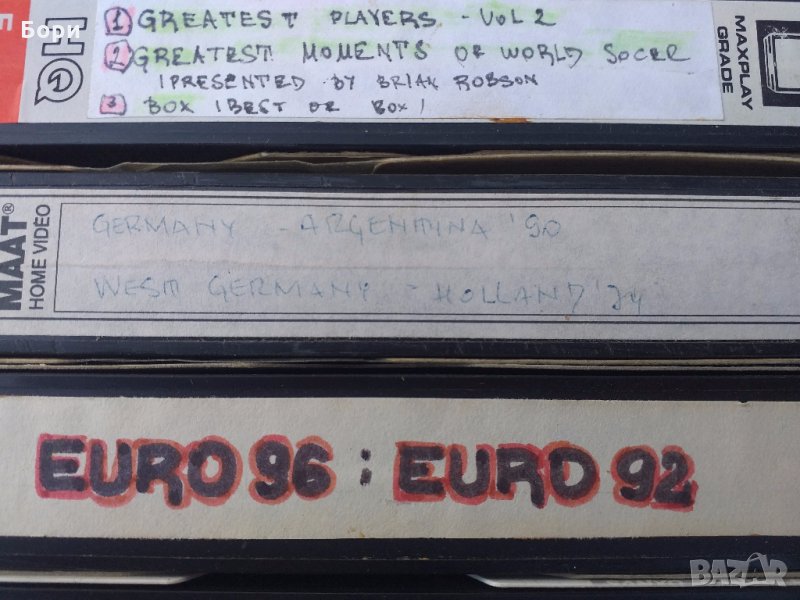 Бори
HQ
① GREATEST PLAYERS - VOL 2
② GREATEST MOMENTS OF WORLD SOCER
(PRESENTED BY BRIAN ROBSON
③ BOX (BEST OF BOX)
MAXPLAY
GRADE
MAAT®
HOME VIDEO
GERMANY - ARGENTINA '90
WEST GERMANY - HOLLAND '74
EURO 96 : EURO 92
BAZAR